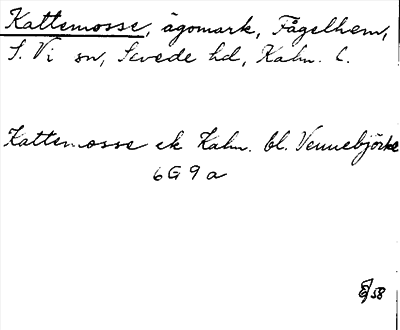 Kattemosse, ägomark, Fågelhem,
S. Vi sn, Sevede hd, Kalm. l.
Kattemosse ek Kalm. bl. Vennebjörke
6G9a
58